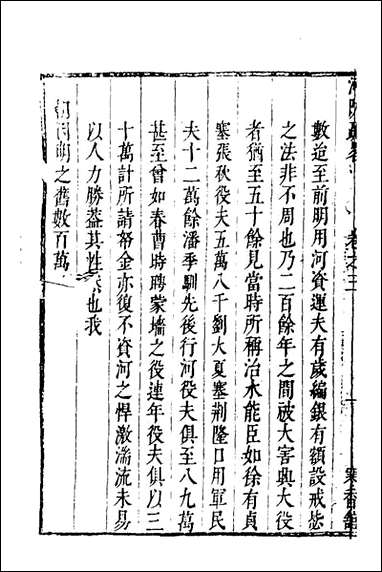 卷之三
數迨至前明用河資運夫有歲編銀有額設戒飭
之法非不周也乃二百餘年之間被大害興大役
者猶至五十餘見當時所稱治水能臣如徐有貞
塞張秋役夫五萬八千劉大夏塞荊隆口用軍民
夫十二萬餘潘季馴先後行河役夫俱至八九萬
甚至曾如春曹時聘蒙墻之役連年役夫俱以三
十萬計所請帑金亦復不資河之悍激湍流未易
以人力勝蓋其性然也我
明之舊數百萬